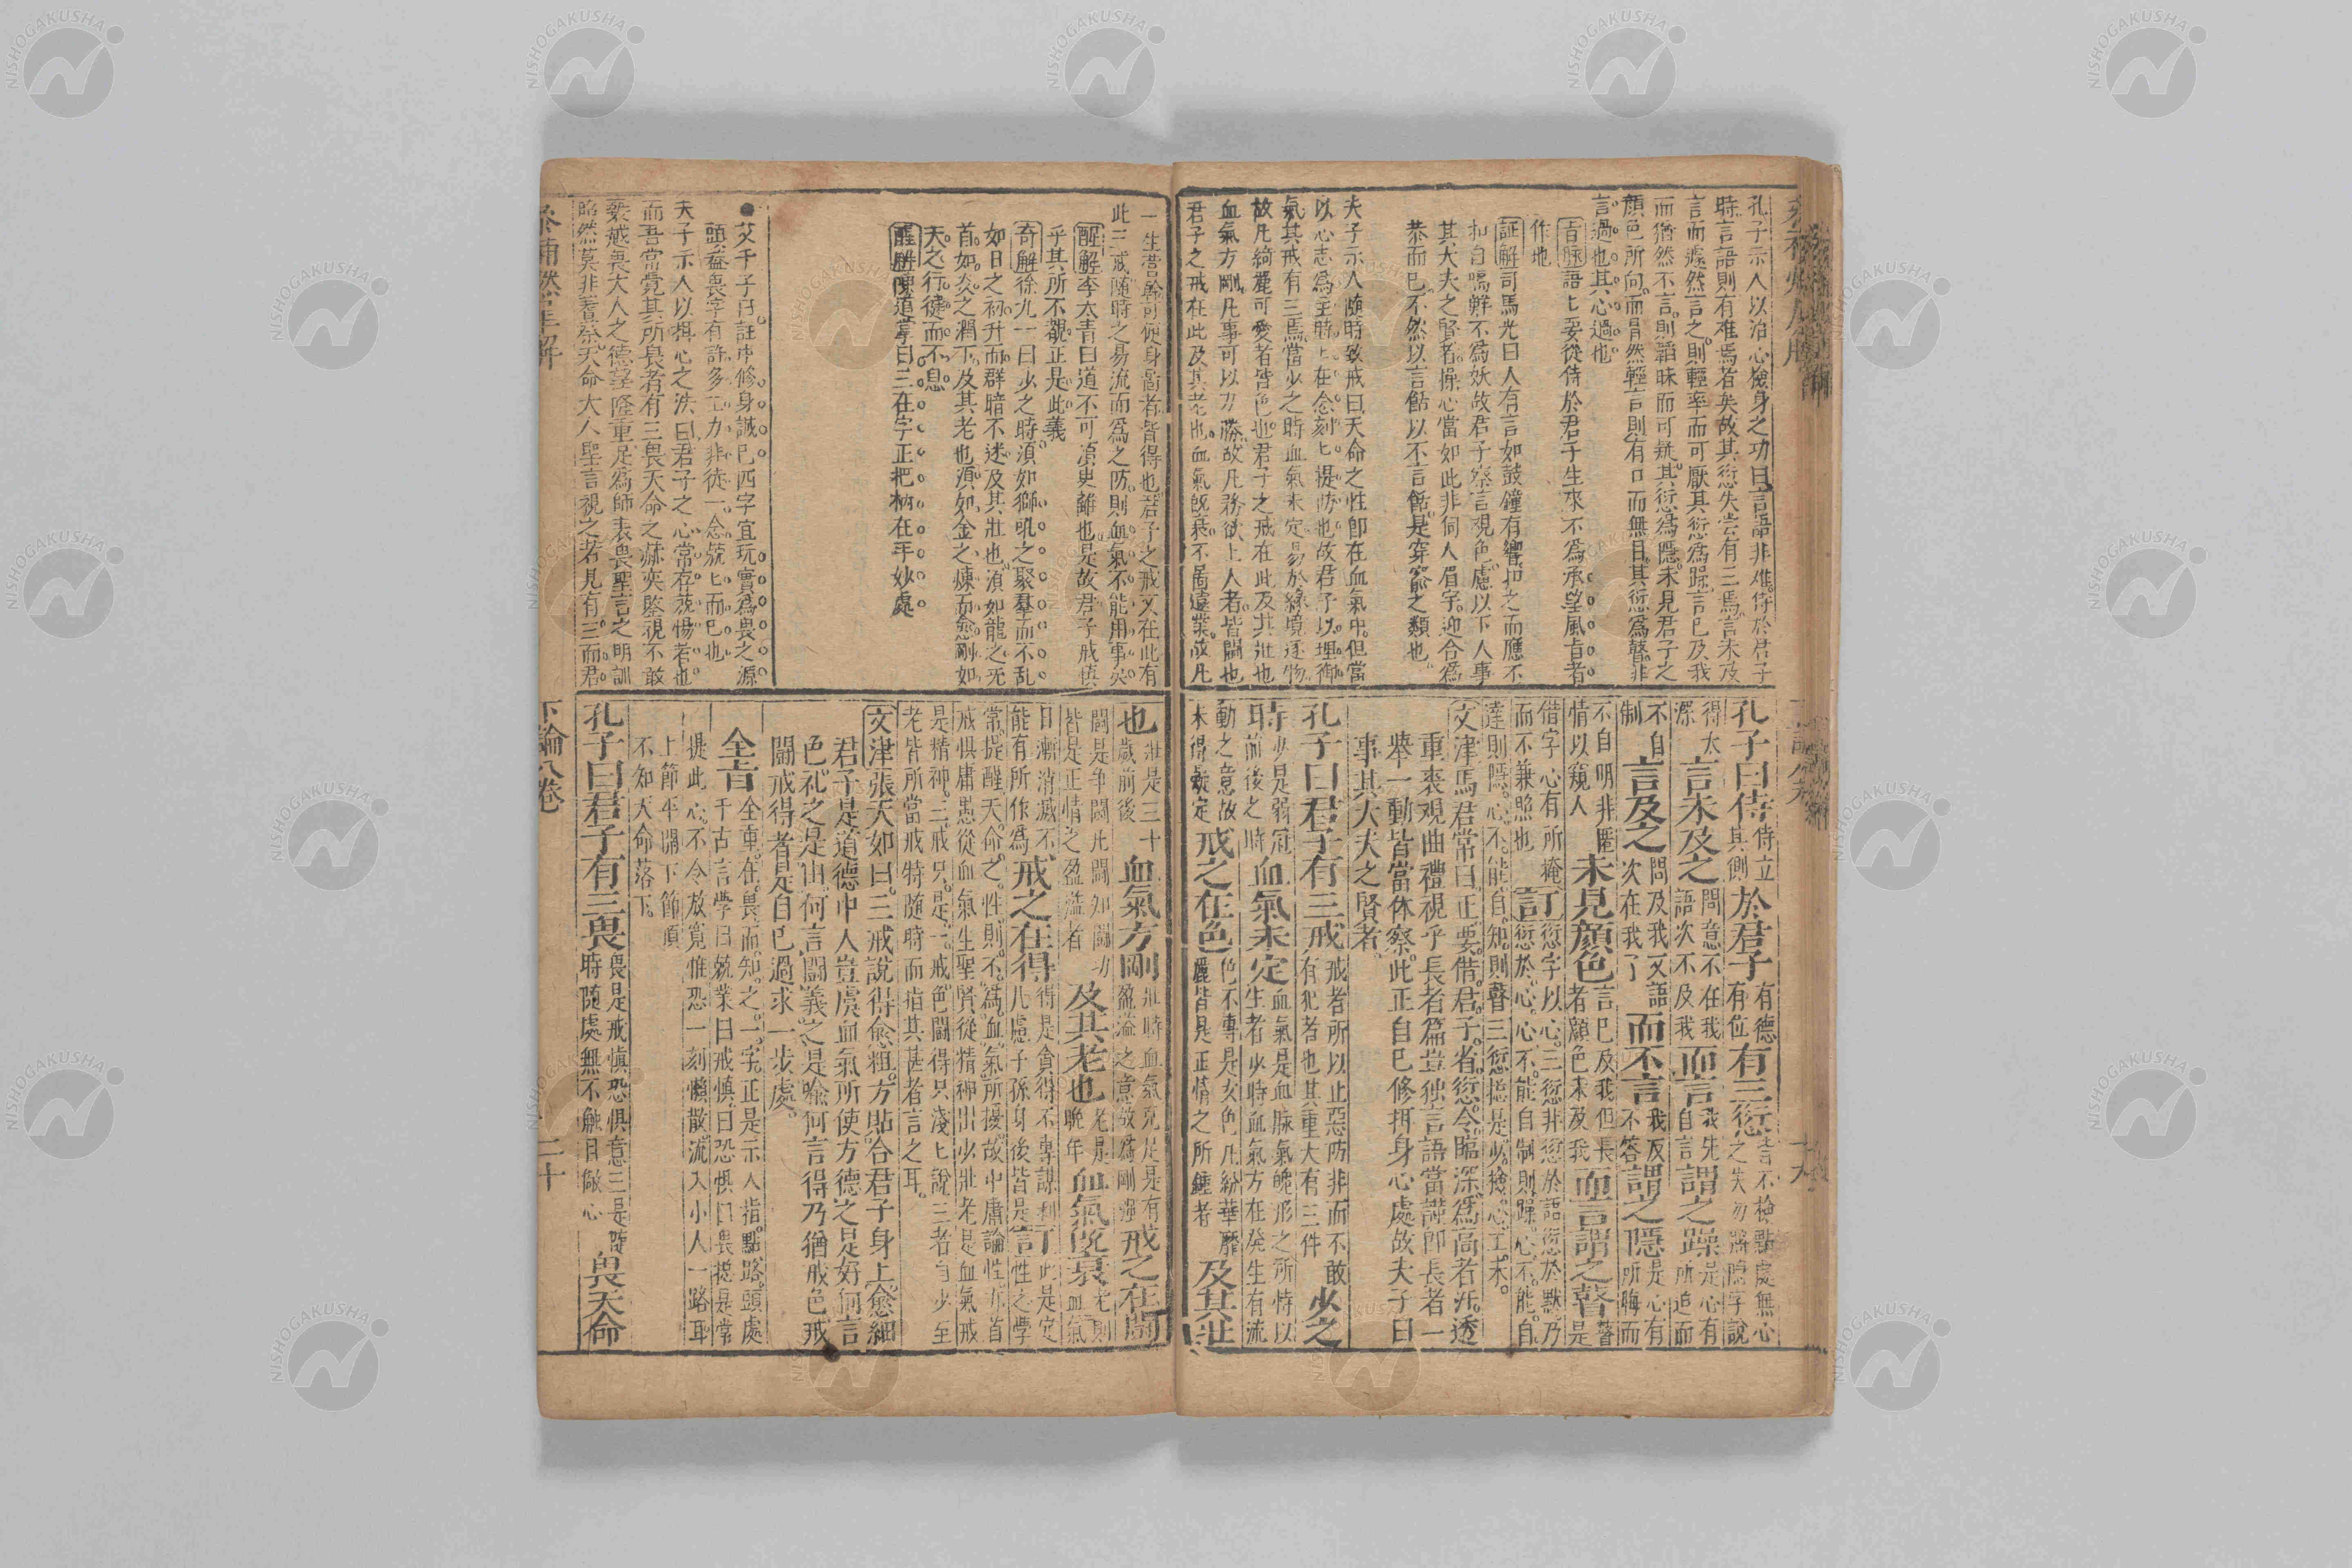 孔子示人以治心檢身之功曰言語非难侍於君子
時言語則有难焉者矣故其愆失尝有三焉言未及
言而遽然言之則輕率而可厭其愆爲躁言已及我
而猶然不言則韜昧而可疑其愆爲隱未見君子之
顏色所向而冒然輕言則有口而無目其愆爲瞽非
言過也其心過也
旨脉語上妥從侍於君子生來不爲承望風旨者
作也
証解司馬光曰人有言如鼓鐘有響扣之而應不
扣自鳴鮮不爲妖故君子察言視色慮以下人事
其大夫之賢者操心當如此非伺人眉宇迎合爲
恭而已不然以言餂以不言餂是穿窬之類也
夫子示人随時致戒曰天命之性卽在血氣中但當
以心志爲主時上在念刻上提防也故君子以理御
氣其戒有三焉當少之時血氣未定易於緣境逐物
故凡綺麗可愛者皆色也君子之戒在此及其壯也
血氣方剛凡事可以力勝故凡務欲上人者皆鬪也
君子之戒在此及其老也血氣旣衰不啚遠業故凡
孔子曰侍侍立其側於君子有德有位有三愆言不檢點處無心之失勿將隱字說
得太深言未及之問意不在我語次不及我而言我先自言謂之躁是心有所追而
不自制言及之問及我又語次在我了而不言我反不答謂之隱是心有所晦而
不自明非匿情以窺人未見顏色言已及我但長者顏色未及我而言謂之瞽瞽是
借字心有所掩而不兼照也訂愆字以心三愆非愆於語愆於默乃愆於心心不能自制則躁心不能自
達則隱心不能自知則瞽三愆捴是少檢心工夫
文津馬君常曰正要借君子省愆令臨深爲高者汗透
重裘观曲禮視乎長者篇豈独言語當謹卽長者一
舉一動皆當体察此正自己修括身心處故夫子曰
事其大夫之賢者
孔子曰君子有三戒戒者所以止惡防非而不敢有犯者也其重大有三件少之
時少是弱冠前後之時血氣未定血氣是血脉氣魄形之所恃以生者少時血氣方在發生有流
動之意故未得凝定戒之在色色不專是女色凡紛華靡麗皆是正情之所鍾者及其壯
一生營幹可便身啚者皆得也君子之戒又在此有
此三戒随時之易流而爲之防則血氣不能用事矣
醒解李太青曰道不可湏臾離也是故君子戒慎
乎其所不覩正是此義
奇解徐九一曰少之時湏如獅吼之聚羣而不乱
如日之初升而群暗不迷及其壯也湏如龍之旡
首如炎之潤下及其老也湏如金之煉而愈剛如
天之行健而不息
醒解陳道掌曰三在字正把柄在手妙處
●艾千子曰註中修身誠巳四字宜玩實爲畏之源
頭葢畏字有許多工力非徒一念兢上而巳也
夫子示人以栱心之法曰君子之心常存兢惕者也
而吾常覺其所畏者有三畏天命之赫奕監視不敢
褻越畏大人之德望隆重足爲師表畏聖言之明訓
昭然莫非蓍蔡天命大人聖言視之若見有三而君
也壯是三十歲前後血氣方剛壯時血氣充足是有盈溢之意故爲剛強戒之在鬪
鬪是争鬪此鬪如鬪功皆是正情之盈滿者及其老也老是晚年血氣旣衰老則血氣
日漸消滅不能有所作爲戒之在得得是貪得不專謀利凡慮子孫身後皆是訂此是定性之學
常提醒天命之性則不爲血氣所擾故中庸論性亦首
戒惧庸愚從血氣生聖賢從精神出少壯老是血氣戒
是精神三戒只是一戒色鬪得只淺上說三者自少至
老皆所當戒特随時而指其甚者言之耳
文津張天如曰三戒說得愈粗方貼合君子身上愈細
君子是道德中人豈虞血氣所使方德之是好何言
色礼之是由何言鬪義之是喩何言得乃猶戒色戒
鬪戒得者是自巳過求一步處
全旨全重在畏而知之一字正是示人指點路頭處
千古言學曰兢業曰戒慎曰恐惧曰畏捴是常
提此心不令放寬惟恐一刻懶散流入小人一路耳
上節平開下節頂
不知天命落下
孔子曰君子有三畏畏是戒愼恐惧意三是随時随處無不触目儆心畏天命
下論八卷
二十
NISHOGAKUSHA